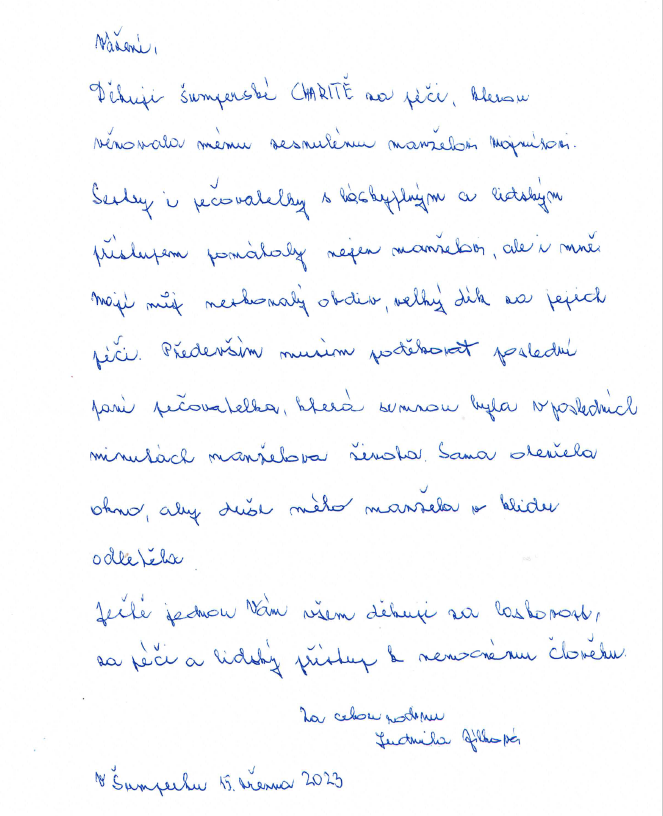 Vážení,
Děkuji šumperské CHARITĚ za péči, kterou
věnovala mému zesnulému manželovi Hojmírovi.
Sestry i pečovatelky s láskyplným a lidským
přístupem pomáhaly nejen manželovi, ale i mně.
Mají můj neskonalý obdiv, velký dík za jejich
péči. Především musím poděkovat poslední
paní pečovatelka, která semnou byla v posledních
minutách manželova života. Sama otevřela
okno, aby duše mého manžela v klidu
odletěla
Ještě jednou Vám všem děkuji za laskavost,
za péči a lidský přístup k nemocnému člověku.
Za celou rodinu
Ludmila
V Šumperku 15. března 2023